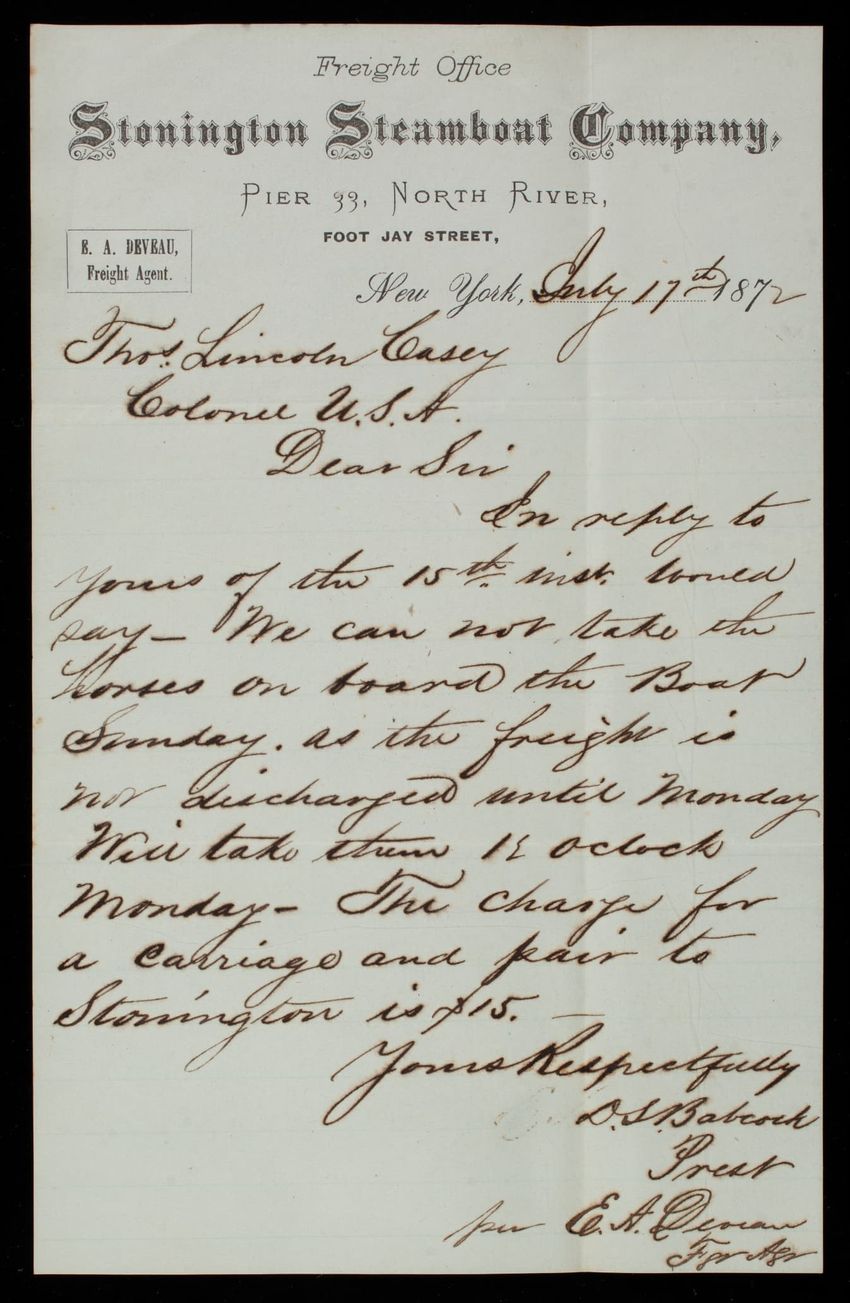 Freight Office
Stonington Steamboat Company,
PIER 33, NORTH RIVER,
FOOT JAY STREET,
E. A. DEVEAU,
Freight Agent.
New York, July 17th 1872
Thos. Lincoln Casey
Colonel U.S.A.
Dear Sir
In reply to
yours of the 15th inst. would
say - We can not take the
horses on board the Boat
Sunday. as the freight is
not discharged until Monday
Will take them 12 oclock
Monday - The charge for
a carriage and pair to
Stonington is $15. -
Yours Respectfully
D.S. Babcock
Prest
per E.A. Deveau
Fgr Agr